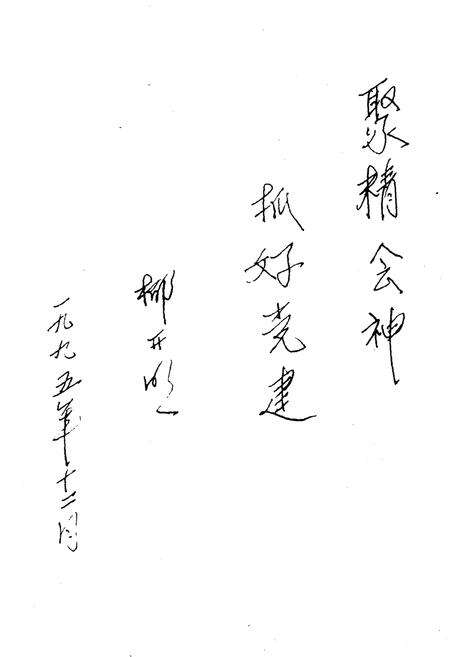 聚精会神
抓好党建
柳开明
一九九五年十二月